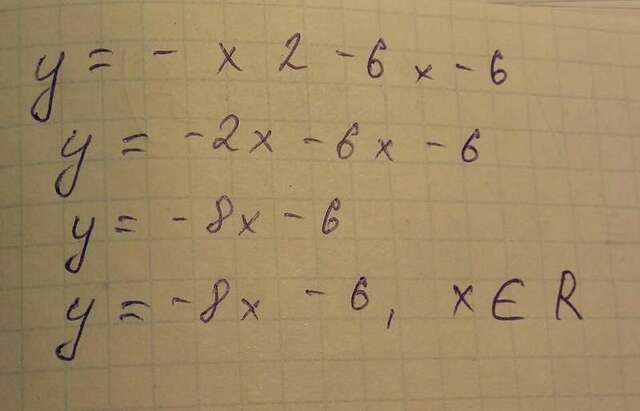 y = - x 2 - 6 x - 6
y = -2x - 6x - 6
y = -8x - 6
y = -8x - 6, x ∈ R